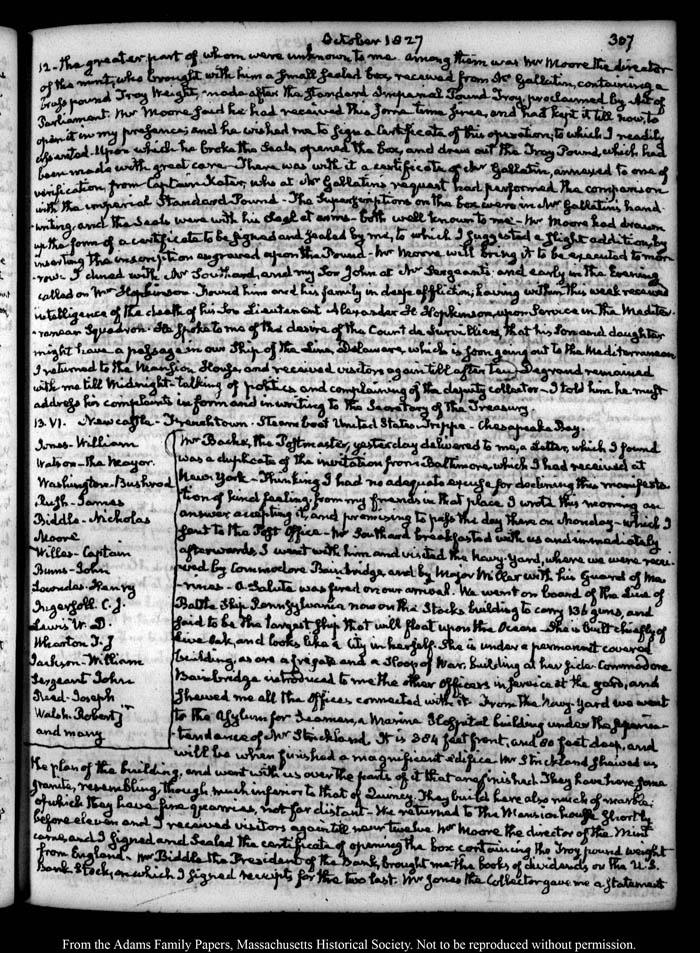 October 1827
307
12 - the greater part of whom were unknown to me. among them was Mr Moore the director
of the mint, who brought with him a small sealed box, received from Mr Gallatin, containing a
brass pound Troy Weight, made after the Standard Imperial Pound Troy, proclaimed by Act of
Parliament. Mr Moore said he had received this some time since, and had kept it till now, to
open it in my presence; and he wished me to sign a Certificate of this operation; to which I readily
assented. Upon which he broke the Seals, opened the box, and drew out the Troy Pound, which had
been made with great care - There was with it a certificate of Mr Gallatin, annexed to one of
verification from Captain Kater, who at Mr Gallatin's request had performed the comparison
with the imperial Standard Pound - The Superscriptions on the box were in Mr Gallatin's hand
writing, and the Seals were with his Seal at arms - both well known to me - Mr Moore had drawn
up the form of a certificate to be signed and sealed by me, to which I suggested a slight addition, by
inserting the inscription engraved upon the Pound - Mr Moore will bring it to be executed to mor
row. I dined with Mr Southard, and my Son John at Mr Sergeants: and early in the Evening
called on Mr Hopkinson. Found him and his family in deep affliction; having within this week received
intelligence of the death of his Son Lieutenant Alexander H Hopkinson, upon Service in the Mediter-
ranean Squadron. He spoke to me of the desire of the Count de Survilliers, that his Son and daughter
might have a passage in our Ship of the Line, Delaware, which is soon going out to the Mediterranean
I returned to the Mansion House, and received visitors again till after ten. Degrand remained
with me till Midnight - talking of politics and complaining of the deputy collector - I told him he must
address his complaints in form and in writing to the Secretary of the Treasury.
13. VI. New castle - Frenchtown - Steam boat United States. Trippe - Chesapeake Bay.
Jones - William
Watson - the Mayor.
Washington - Bushrod
Rush - James
Biddle - Nicholas
Moore
Willes - Captain
Burns - John
Lowndes - Henry
Ingersoll C. J.
Lewis W. D.
Wharton T. J
Jackson - William
Sergeant John
Reed - Joseph
Walsh. Robert Jr
and many
Mr Bache, the Postmaster, yesterday delivered to me, a Letter, which I found
was a duplicate of the invitation from Baltimore, which I had received at
New York - Thinking I had no adequate excuse for declining this manifesta-
tion of kind feeling, from my friends in that place I wrote this morning an
answer accepting it, and promising to pass the day there on Monday - which I
sent to the Post Office - Mr Southard breakfasted with us and immediately
afterwards, I went with him and visited the Navy-Yard, where we were recei-
ved by Commodore Bainbridge, and by Major Miller with his Guard of Ma-
rines - A Salute was fired on our arrival. We went on board of the Line of
Battle Ship Pennsylvania now on the Stocks building to carry 136 guns, and
said to be the largest ship that will float upon the Ocean. She is built chiefly of
live Oak, and looks like a City in herself. She is under a permanent covered
building; as are a frigate and a Sloop of War, building at her side. Commodore
Bainbridge introduced to me the other Officers in service at the yard, and
shewed me all the Offices, connected with it - From the Navy-Yard we went
to the Asylum for Seamen, a Marine Hospital building under the superin-
tendance of Mr Strickland. It is 384 feet front, and 80 feet deep, and
will be when finished a magnificent edifice. Mr Strickland shewed us
the plan of the building, and went with us over the parts of it that are finished. They have here some
granite, resembling though much inferior to that of Quincy. They build here also much of marble;
of which they have fine quarries, not far distant - We returned to the Mansion house shortly
before eleven and I received visitors again till near twelve. Mr Moore the director of the Mint
came, and I signed and sealed the certificate of opening the box containing the Troy pound weight
from England. Mr Biddle the President of the Bank, brought me the books of dividends on the U.S.
Bank Stock, on which I signed receipts for the two last. Mr Jones the Collector gave me a Statement
From the Adams Family Papers, Massachusetts Historical Society. Not to be reproduced without permission.